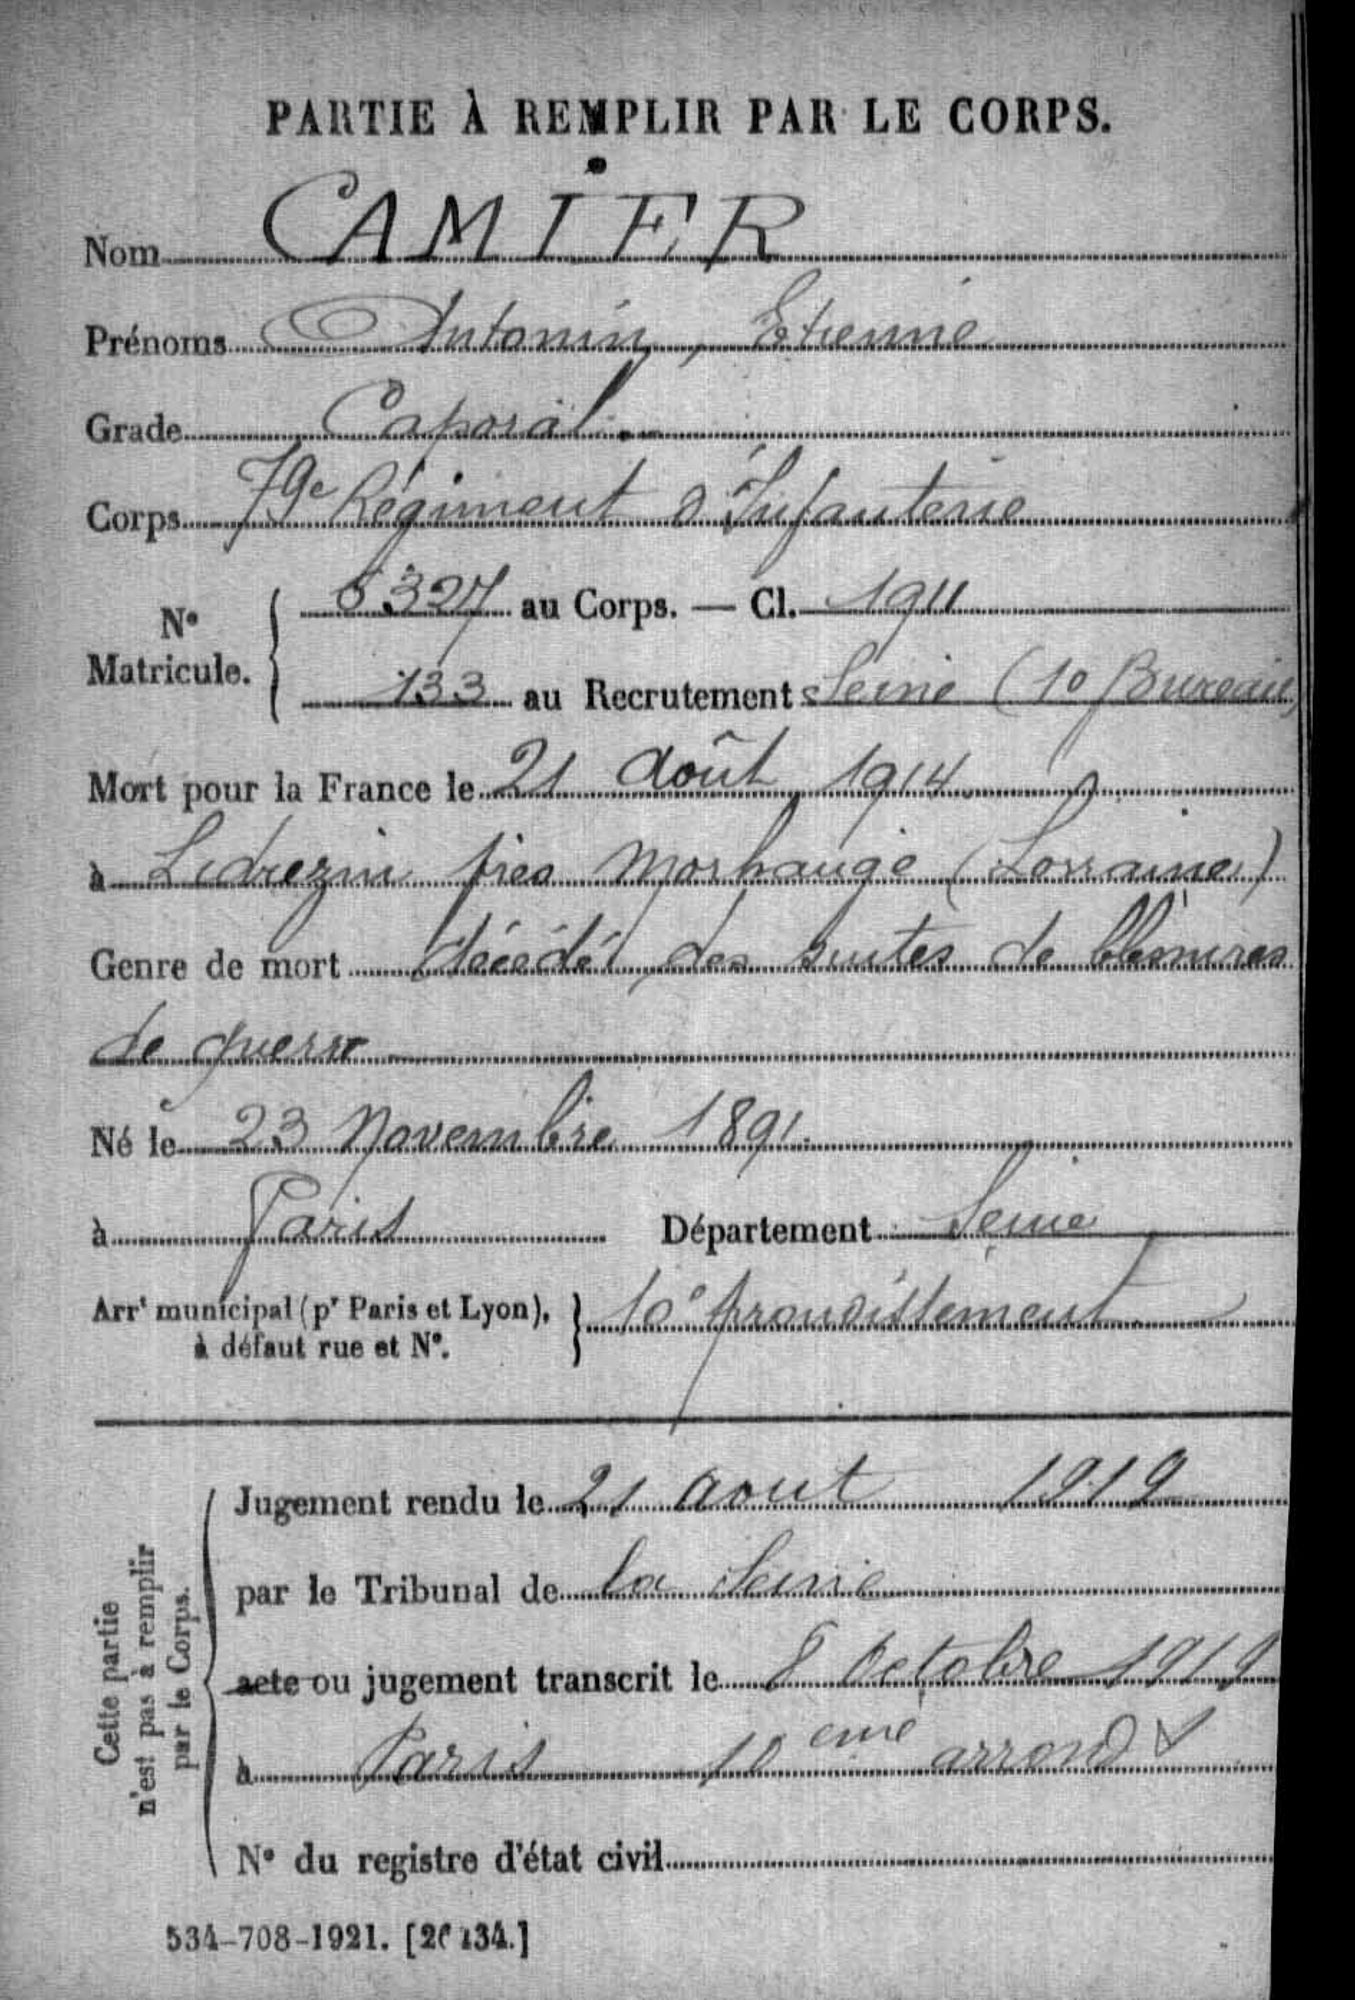 PARTIE À REMPLIR PAR LE CORPS.
Nom CAMIER
Prénoms Antonin, Etienne
Grade Caporal
Corps 79e Régiment d'Infanterie
N° Matricule. { 5327 au Corps. — Cl. 1911
133 au Recrutement Seine (1º Bureau)
Mort pour la France le 21 Août 1914
à Lidrezin près Morhange (Lorraine)
Genre de mort décédé des suites de blessures
de guerre
Né le 23 Novembre 1891
à Paris Département Seine
Arrt municipal (pr Paris et Lyon), à défaut rue et N°. } 10º Arrondissement
Cette partie n'est pas à remplir par le Corps.
Jugement rendu le 21 aout 1919
par le Tribunal de la Seine
acte ou jugement transcrit le 8 Octobre 1919
à Paris 10eme arrondt
N° du registre d'état civil
534-708-1921. [26134.]